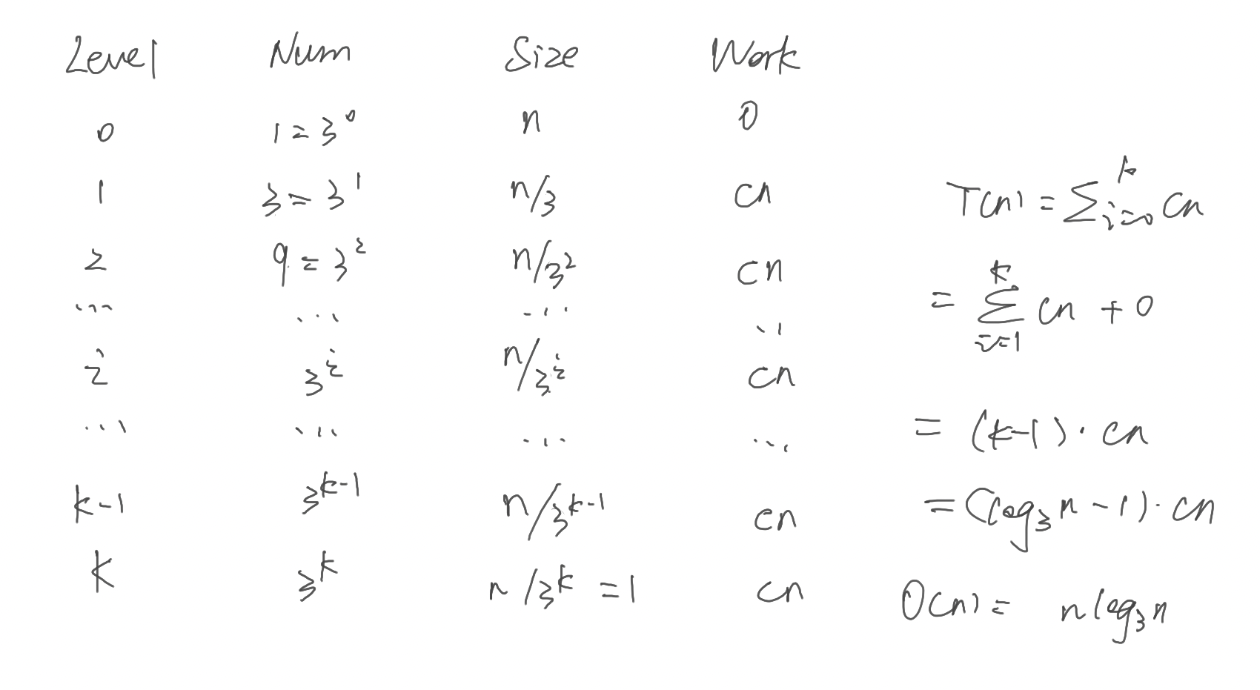 Level Num Size Work
0 1 = 3^0 n 0
1 3 = 3^1 n/3 cn
2 9 = 3^2 n/3^2 cn
... ... ... ...
i 3^i n/3^i cn
... ... ... ...
k-1 3^{k-1} n/3^{k-1} cn
k 3^k n/3^k = 1 cn
T(n) = Σ_{i=0}^{k} cn
= Σ_{i=1}^{k} cn + 0
= (k-1) · cn
= (log_3 n - 1) · cn
O(n) = n log_3 n